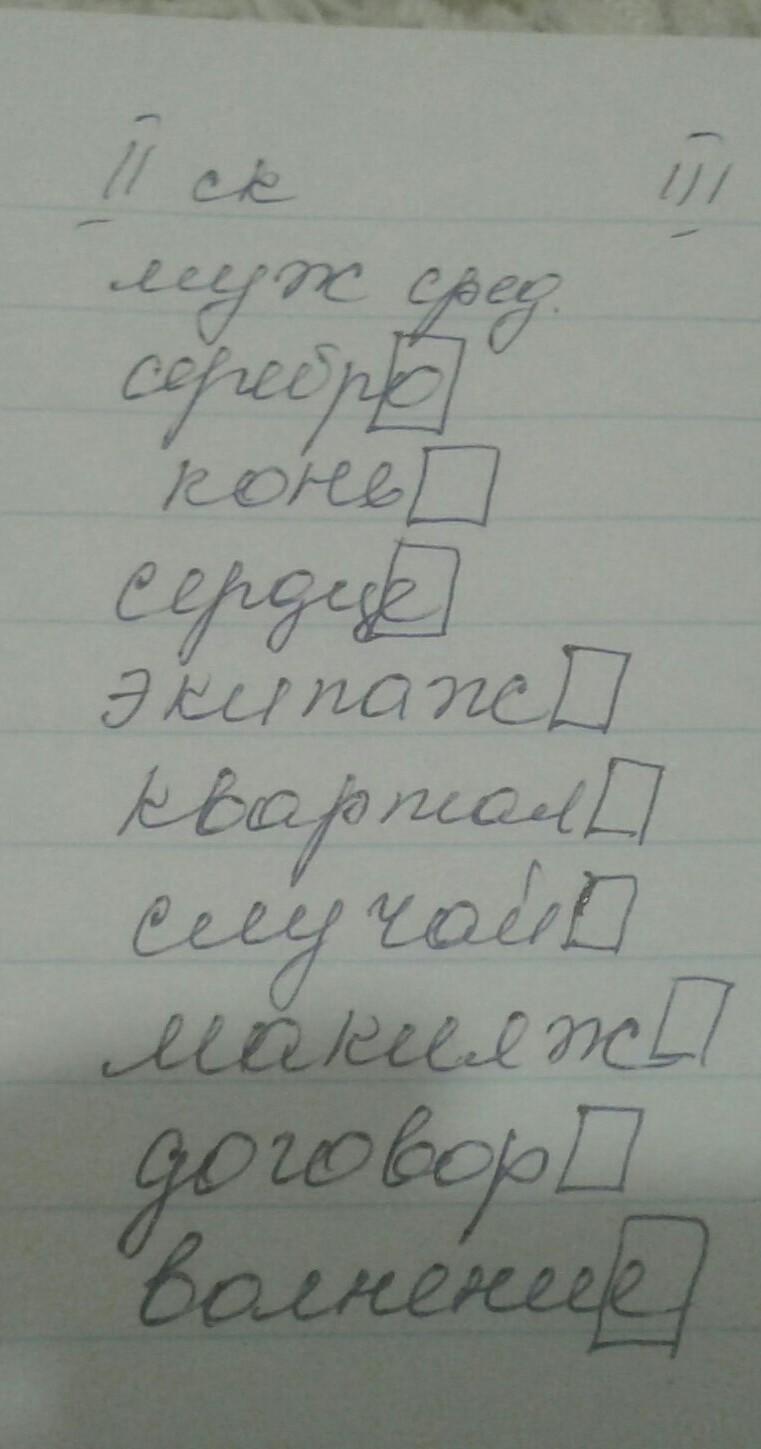 II ск III
муж сред.
серебро
конь
сердце
экипаж
квартал
случай
макияж
договор
волнение